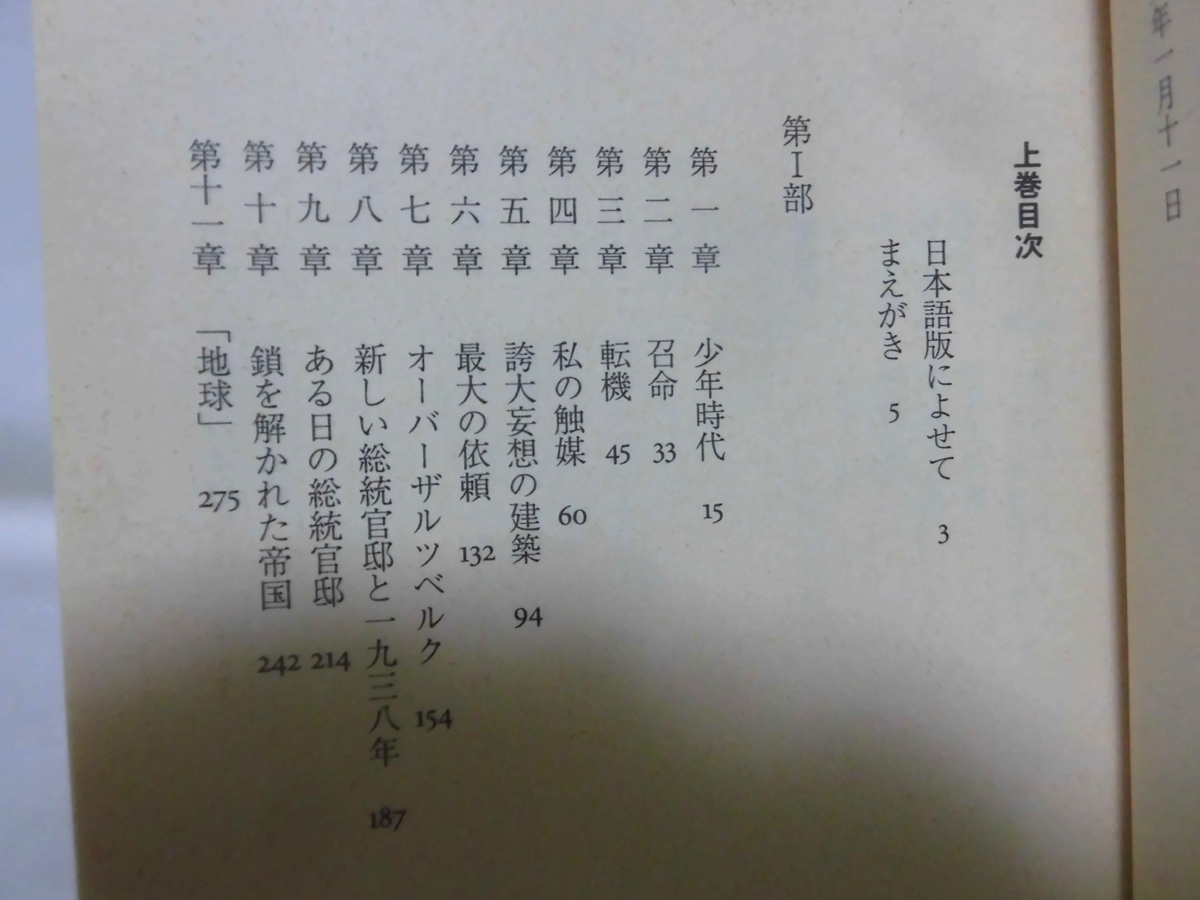 年一月十一日
上巻目次
日本語版によせて 3
まえがき 5
第Ⅰ部
第一章 少年時代 15
第二章 召命 33
第三章 転機 45
第四章 私の触媒 60
第五章 誇大妄想の建築 94
第六章 最大の依頼 132
第七章 オーバーザルツベルク 154
第八章 新しい総統官邸と一九三八年 187
第九章 ある日の総統官邸 214
第十章 鎖を解かれた帝国 242
第十一章 「地球」 275